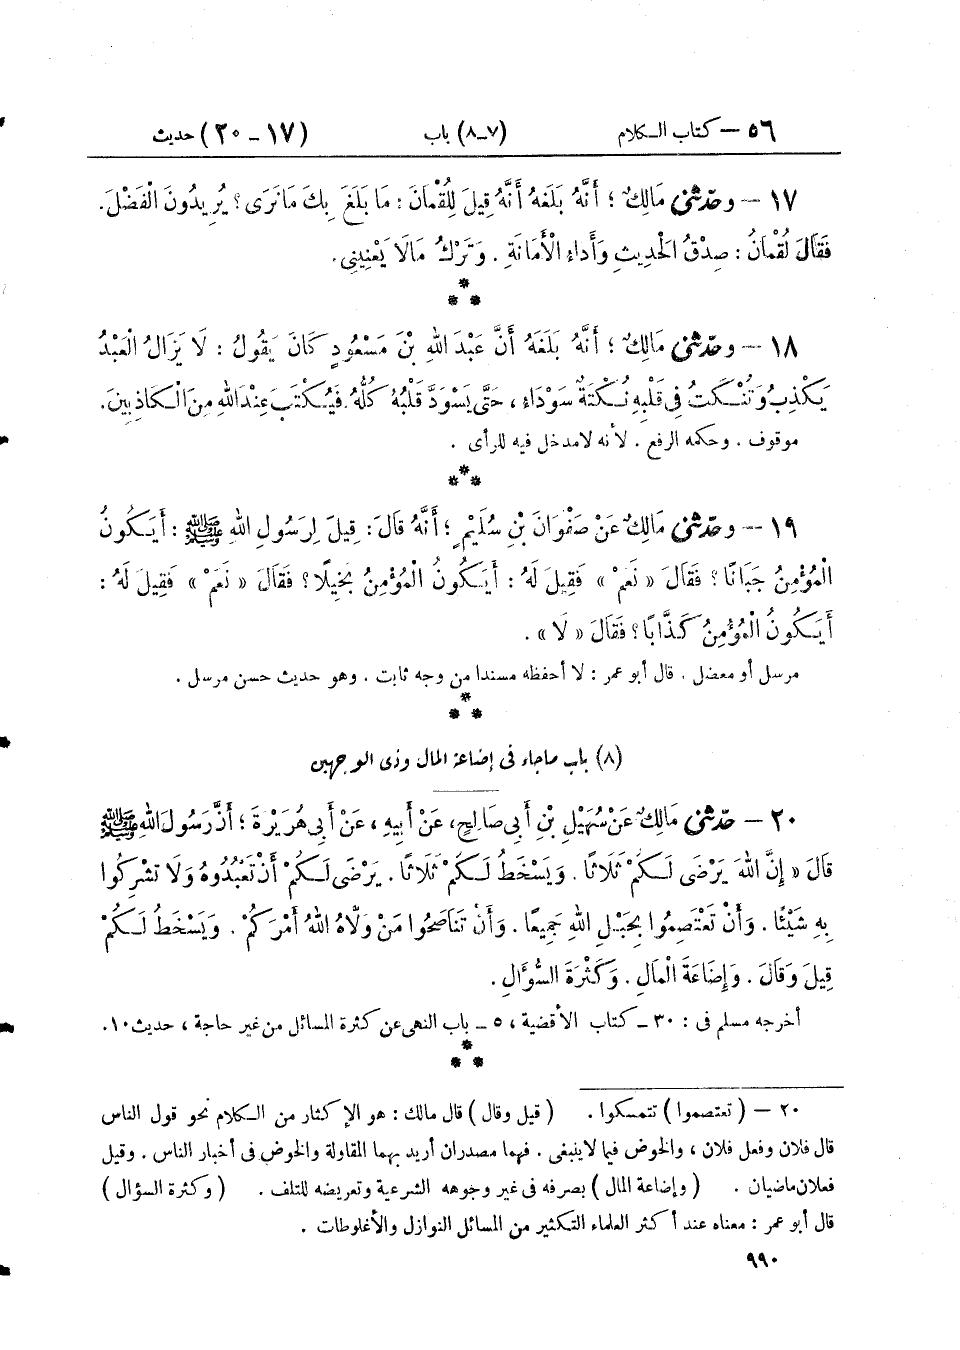 ٥٦ — كتاب الكلام (٧-٨) باب (١٧ - ٢٠) حديث
١٧ — وحدّثني مَالِكٌ ؛ أَنَّهُ بَلَغَهُ أَنَّهُ قِيلَ لِلُقْمَانَ : مَا بَلَغَ بِكَ مَا نَرَى ؟ يُرِيدُونَ الْفَضْلَ .
فَقَالَ لُقْمَانُ : صِدْقُ الْحَدِيثِ وَأَدَاءُ الْأَمَانَةِ . وَتَرْكُ مَالَا يَعْنِينِي .
***
١٨ — وحدّثني مَالِكٌ ؛ أَنَّهُ بَلَغَهُ أَنَّ عَبْدَ اللهِ بْنَ مَسْعُودٍ كَانَ يَقُولُ : لَا يَزَالُ الْعَبْدُ
يَكْذِبُ وَتُنْكَتُ فِي قَلْبِهِ نُكْتَةٌ سَوْدَاءُ ، حَتَّى يَسْوَدَّ قَلْبُهُ كُلُّهُ . فَيُكْتَبَ عِنْدَ اللهِ مِنَ الْكَاذِبِينَ .
موقوف . وحكمه الرفع . لأنه لامدخل فيه للرأى .
***
١٩ — وحدّثني مَالِكٌ عَنْ صَفْوَانَ بْنِ سُلَيْمٍ ؛ أَنَّهُ قَالَ : قِيلَ لِرَسُولِ اللهِ ﷺ : أَيَكُونُ
الْمُؤْمِنُ جَبَانًا ؟ فَقَالَ « نَعَمْ » فَقِيلَ لَهُ : أَيَكُونُ الْمُؤْمِنُ بَخِيلًا ؟ فَقَالَ « نَعَمْ » فَقِيلَ لَهُ :
أَيَكُونُ الْمُؤْمِنُ كَذَّابًا ؟ فَقَالَ « لَا » .
مرسل أو معضل . قال أبو عمر : لا أحفظه مسندا من وجه ثابت . وهو حديث حسن مرسل .
***
(٨) باب ماجاء فى إضاعة المال وذى الوجهين
٢٠ — حدّثني مَالِكٌ عَنْ سُهَيْلِ بْنِ أَبِي صَالِحٍ ، عَنْ أَبِيهِ ، عَنْ أَبِي هُرَيْرَةَ ؛ أَنَّ رَسُولَ اللهِ ﷺ
قَالَ « إِنَّ اللهَ يَرْضَى لَكُمْ ثَلَاثًا . وَيَسْخَطُ لَكُمْ ثَلَاثًا . يَرْضَى لَكُمْ أَنْ تَعْبُدُوهُ وَلَا تُشْرِكُوا
بِهِ شَيْئًا . وَأَنْ تَعْتَصِمُوا بِحَبْلِ اللهِ جَمِيعًا . وَأَنْ تَنَاصَحُوا مَنْ وَلَّاهُ اللهُ أَمْرَكُمْ . وَيَسْخَطُ لَكُمْ
قِيلَ وَقَالَ . وَإِضَاعَةَ الْمَالِ . وَكَثْرَةَ السُّؤَالِ .
أخرجه مسلم فى : ٣٠ — كتاب الأقضية ، ٥ — باب النهى عن كثرة المسائل من غير حاجة ، حديث ١٠ .
***
٢٠ — ( تعتصموا ) تتمسكوا . ( قيل وقال ) قال مالك : هو الإكثار من الكلام نحو قول الناس
قال فلان وفعل فلان ، والخوض فيما لاينبغى . فهما مصدران أريد بهما المقاولة والخوض فى أخبار الناس . وقيل
فعلان ماضيان . ( وإضاعة المال ) بصرفه فى غير وجوهه الشرعية وتعريضه للتلف . ( وكثرة السؤال )
قال أبو عمر : معناه عند أكثر العلماء التكثير من المسائل النوازل والأغلوطات .
٩٩٠